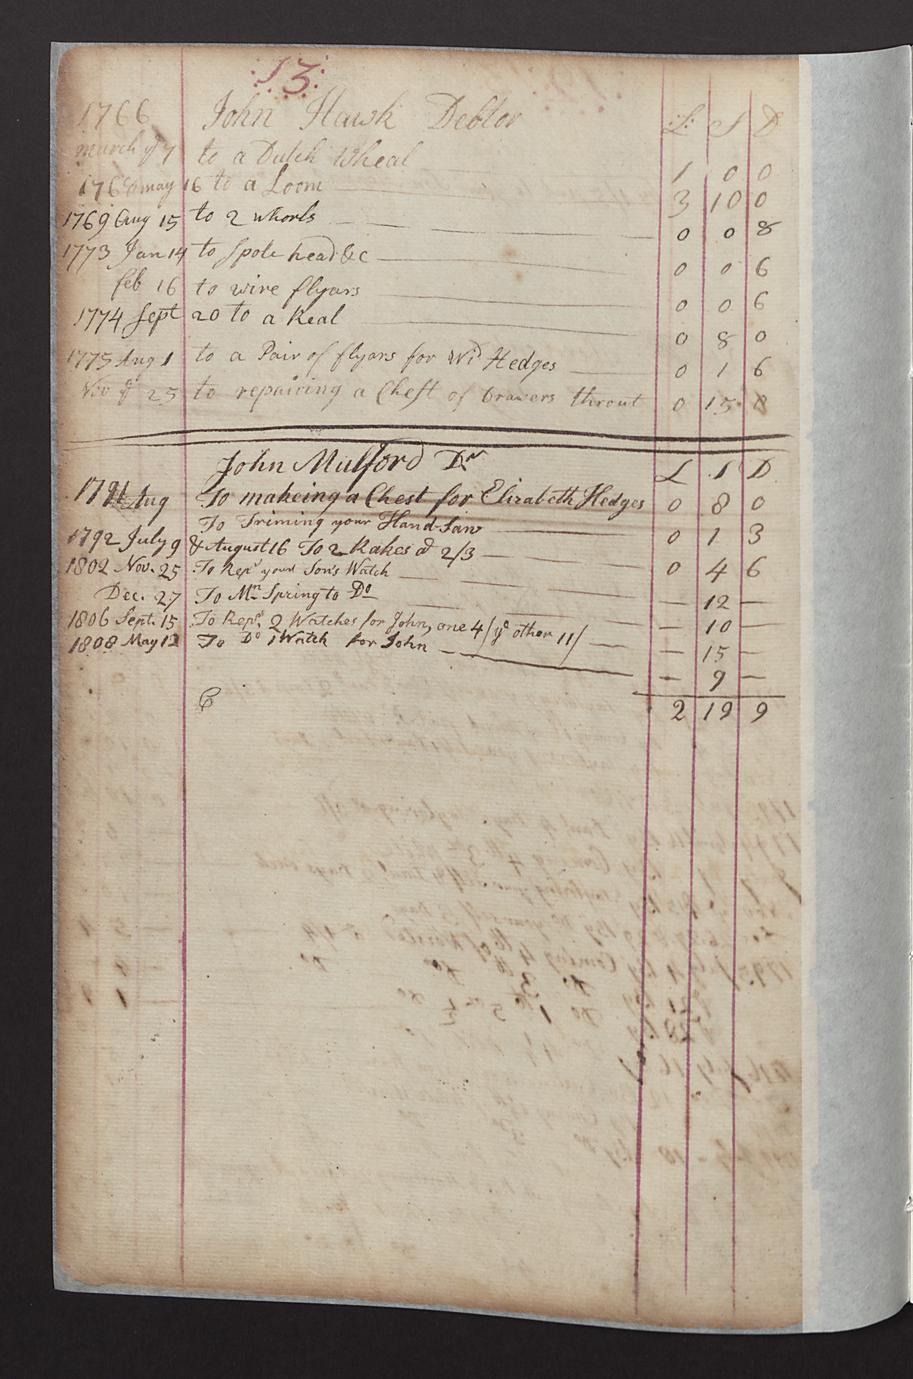 13
1766 John Hawk Debtor £ S D
march ye 7 to a Dutch Wheal 1 0 0
may 16 to a Loom 3 10 0
1769 Aug 15 to 2 whorls 0 0 8
1773 Jan 14 to spole head &c 0 0 6
feb 16 to wire flyars 0 0 6
1774 Sept 20 to a Real 0 8 0
1775 Aug 1 to a Pair of flyars for Wd Hedges 0 1 6
Nov ye 25 to repairing a Chest of Drawers throut 0 15 8
John Mulford Dr L S D
1791 Aug To makeing a Chest for Elizabeth Hedges 0 8 0
To Triming your Hand-Saw 0 1 3
1792 July 9 & August 16 To 2 Rakes @ 2/3 0 4 6
1802 Nov. 25 To Repg your Son's Watch — 12 —
Dec. 27 To Mn Spring to Do — 10 —
1806 Sept. 15 To Repg 2 Watches for John, one 4/ ye other 11/ — 15 —
1808 May 12 To Do 1 Watch for John — 9 —
2 19 9